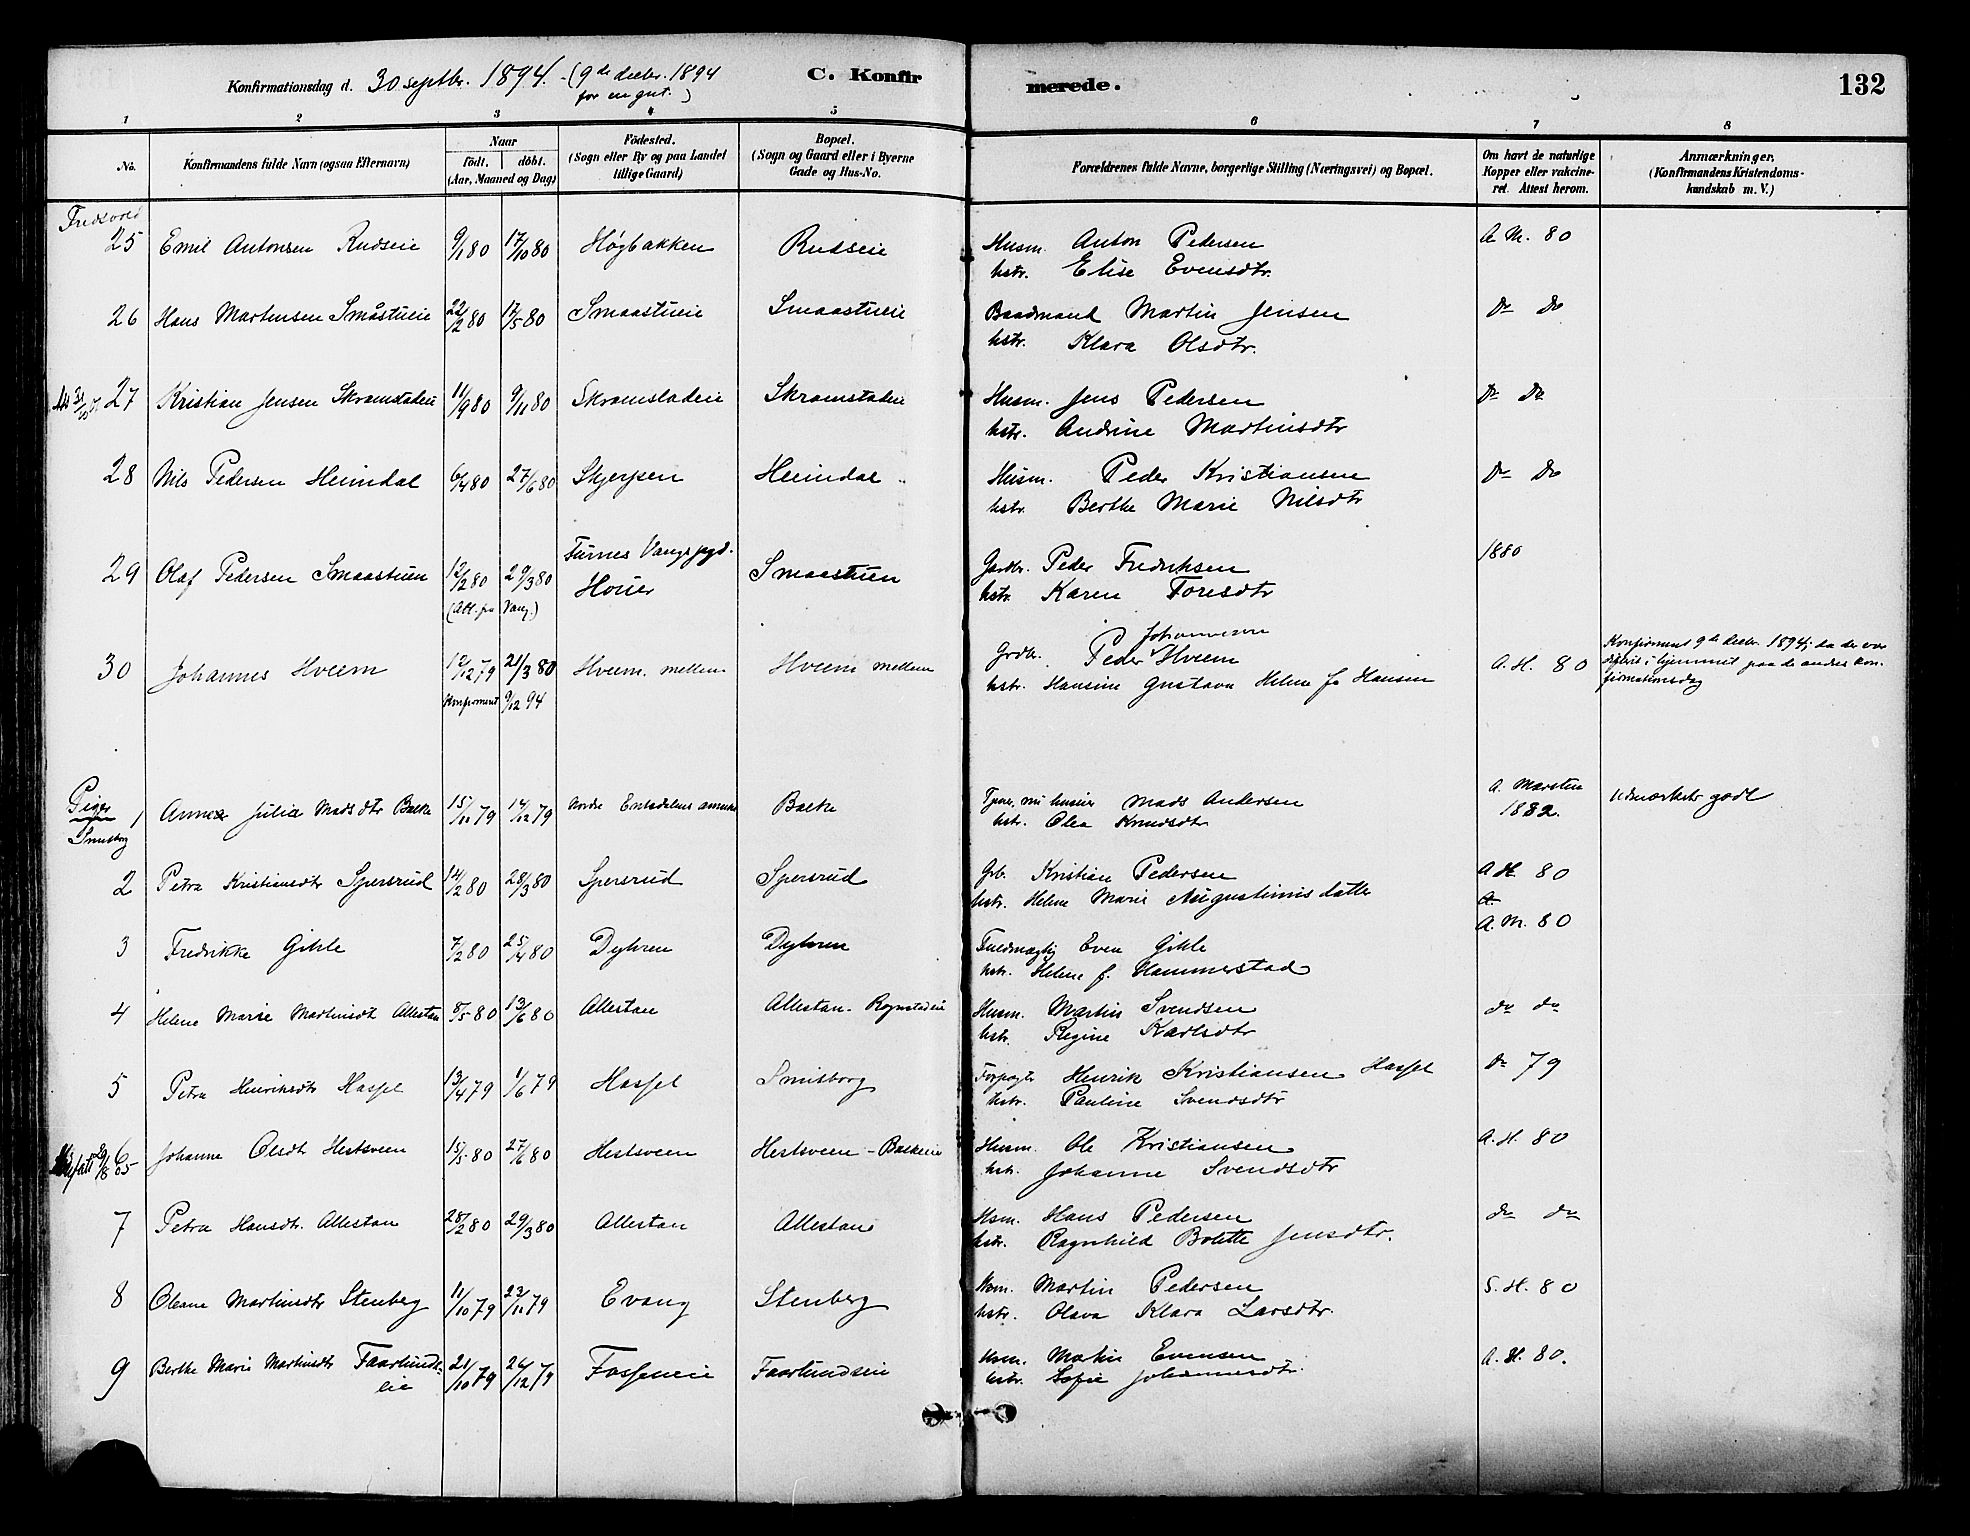 Konfirmationsdag d. 30 septbr. 1894. (9de decbr. 1894
for en gut.)
C. Konfir
merede.
132
1 2 3 4 5 6 7 8
No.
Konfirmandens fulde Navn (ogsaa Efternavn)
Naar
födt. döbt.
(Aar, Maaned og Dag)
Födested.
(Sogn eller By og paa Landet
tillige Gaard)
Bopæl.
(Sogn og Gaard eller i Byerne
Gade og Hus-No.
Forældrenes fulde Navne, borgerlige Stilling (Næringsvei) og Bopæl.
Om havt de naturlige
Kopper eller vakcine-
ret. Attest herom.
Anmærkninger.
(Konfirmandens Kristendoms-
kundskab m. V.)
25 Emil Antonsen Rudseie 9/1 80 17/10 80 Høgbakken Rudseie Husm. Anton Pedersen A. M. 80
hstr. Elise Evensdtr.
26 Hans Martinsen Småstueie 22/2 80 17/5 80 Smaastueie Smaastueie Baadmand Martin Jensen Do Do
hstr. Klara Olsdtr.
27 Kristian Jensen Skramstadeie 11/9 80 9/11 80 Skramstadeie Skramstadeie Husm. Jens Pedersen Do Do
hstr. Andrine Martinsdtr
28 Nils Pedersen Heimdal 6/4 80 27/6 80 Skjerpen Heimdal Husm. Peder Kristiansen Do Do
hstr. Berthe Marie Nilsdtr
29 Olaf Pedersen Smaastuen 12/2 80 29/3 80 Furnes Vangs pgd. Smaastuen Gardbr. Peder Fredriksen 1880
(Att. fra Vang.) Houer hstr. Karen Toresdtr
30 Johannes Hveem 10/12 79 21/3 80 Hveem mellem Hveem mellem Grdbr. Peder Johannesen Hveem A. H. 80 Konfirmeret 9de decbr. 1894, da der var
difteri i hjemmet paa de andres kon-
firmationsdag
Konfirmeret 9/12 94 hstr. Hansine Gustava Helene f. Hansen
Piger
Smidborg
1 Anna Julia Madsdtr Balke 15/11 79 14/12 79 Balke Mads Andersen A. Marsten 1882. Udmærket godt
hstr. Olea Knudsdtr
2 Petra Kristiansdtr Spersrud 14/2 80 28/3 80 Spersrud Spersrud Grb. Kristian Pedersen A H 80
hstr. Helene Marie Augustinusdatter
3 Fredrikke Gihle 7/2 80 25/4 80 Dyhren Dyhren Fuldmægtig Even Gihle A. M. 80
hstr. Helene f. Hammerstad
4 Helene Marie Martinsdt Allestan 8/5 80 13/6 80 Allestan Allestan - Rognstadeie Husm. Martin Svendsen do do
hstr. Regine Karlsdtr
5 Petra Henriksdtr Hassel 13/4 79 1/6 79 Hassel Smidborg Forpagter Henrik Kristiansen Hassel do 79
hstr. Pauline Svendsdtr
6 Johanne Olsdt Hestsveen 15/5 80 27/6 80 Hestsveen Hestsveen - Balkeeie Husm. Ole Kristiansen A. H. 80
hstr. Johanne Svendsdtr
7 Petra Hansdtr. Allestan 28/2 80 29/3 80 Allestan Allestan Hsm. Hans Pedersen do do
hstr. Ragnhild Bolette Jensdtr.
8 Oleane Martinsdtr Stenberg 11/10 79 23/11 79 Evang Stenberg Hsm. Martin Pedersen S. H. 80
hstr. Olava Klara Larsdtr.
9 Berthe Marie Martinsdt Faarlunds- 21/10 79 26/12 79 Fosseneie Faarlundseie Hsm. Martin Evensen A. H. 80.
eie hstr. Sofie Johannesdtr.